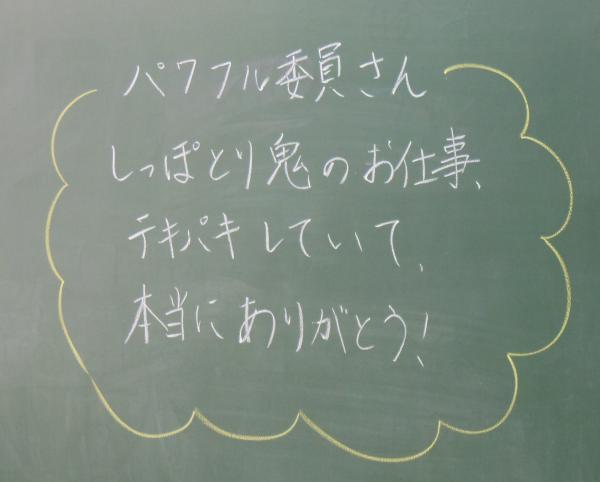 パワフル委員さん
しっぽとり鬼のお仕事、
テキパキしていて、
本当にありがとう!